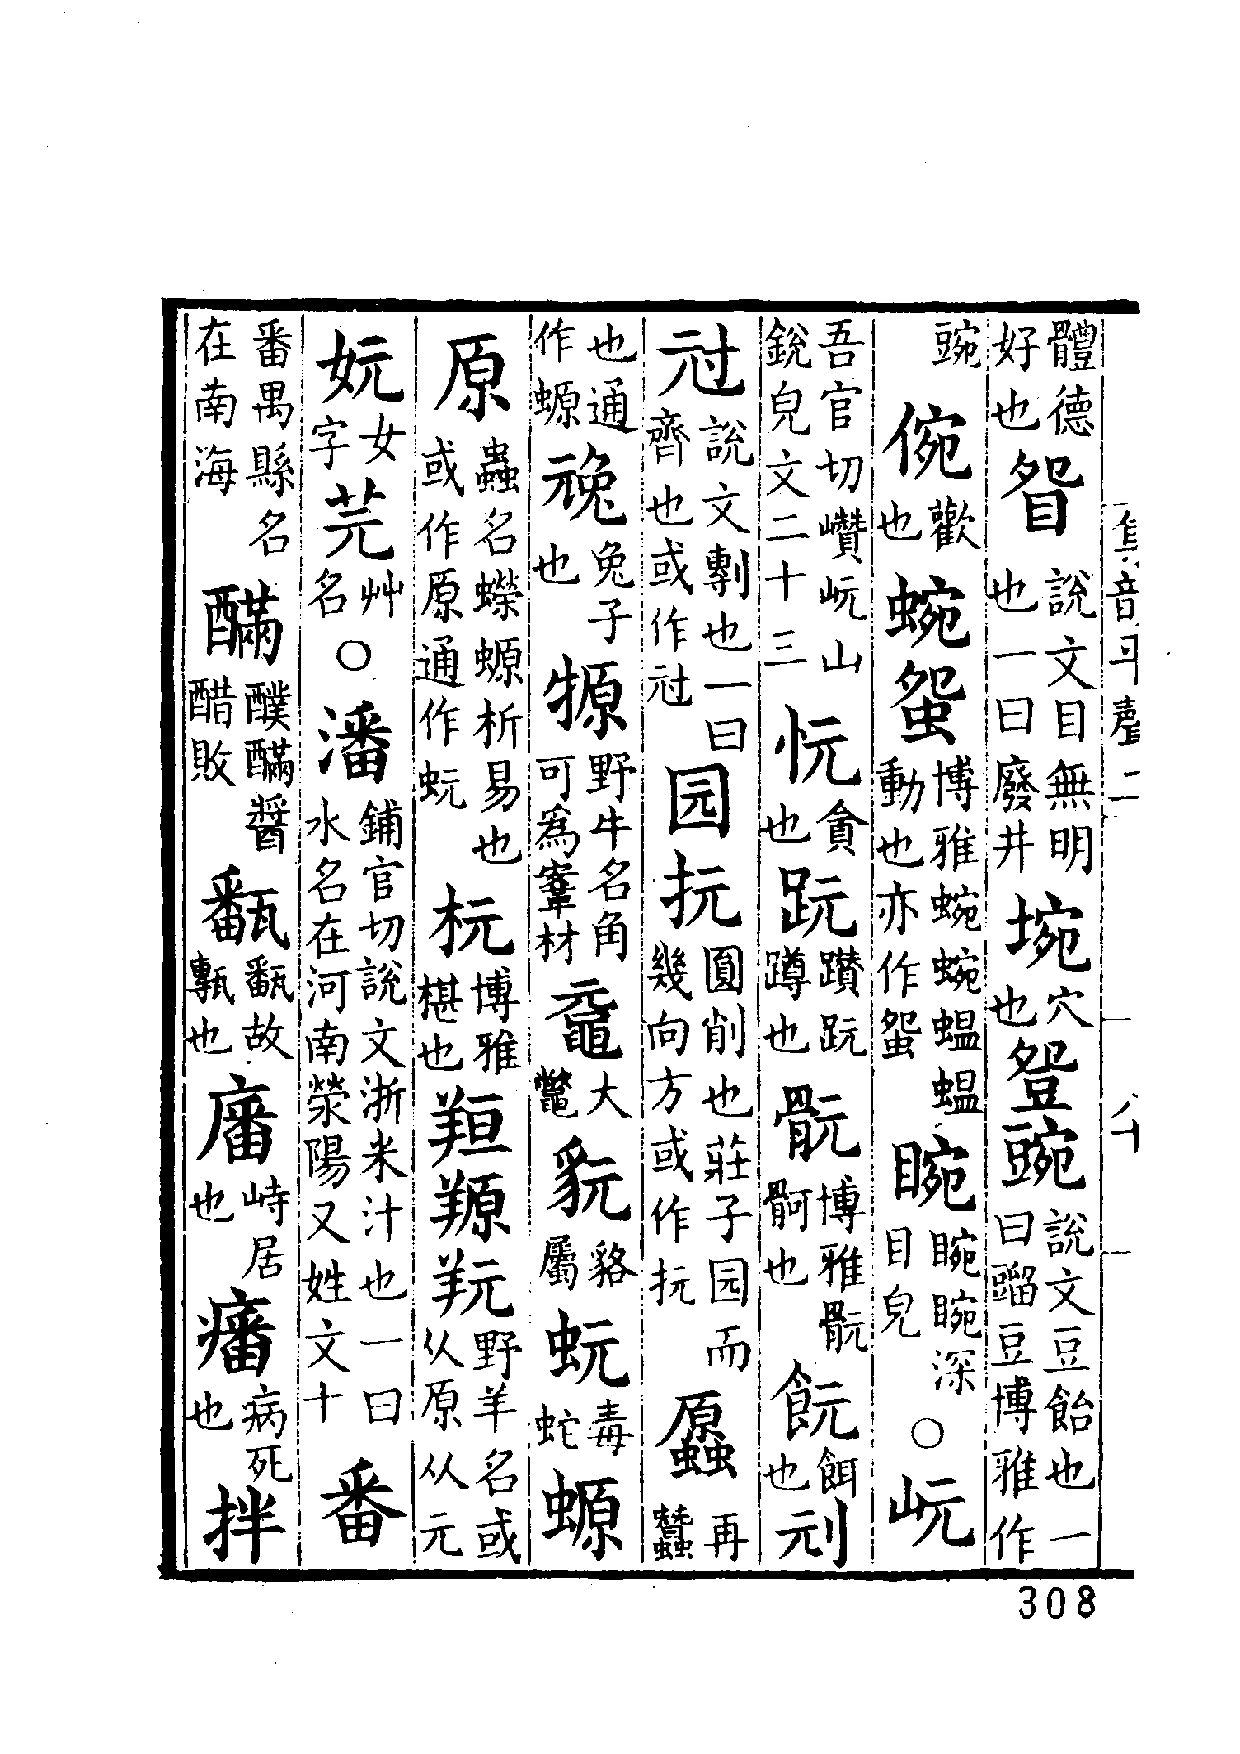 體德好也眢說文目無明也一曰廢井埦穴也豋豌說文豆飴也一曰䠧豆博雅作
豌倇歡也蜿䖤博雅蜿蜿蝹蝹動也亦作䖤睕睕睕深目皃○岏
吾官切巑岏山銳皃文二十三忨貪也䟚躦䟚蹲也䯈博雅䯈䯊也䬧餌也刓
說文剸也一曰齊也或作园抏圓削也莊子园而幾向方或作抏䘇再蠶
也通作螈兔子也野牛名角可爲鞌材黿大鼈貦貉屬蚖毒蛇螈
原蟲名蠑螈析易也或作原通作蚖杬博雅椹也羱野羊名或从原从元
妧女字芫艸名○潘鋪官切說文淅米汁也一曰水名在河南滎陽又姓文十番
番禺縣名在南海䤍醭䤍醬醋敗㽃㽃故甎也㢖峙居也㿒病死也拌
集韻平聲二
八十一
308